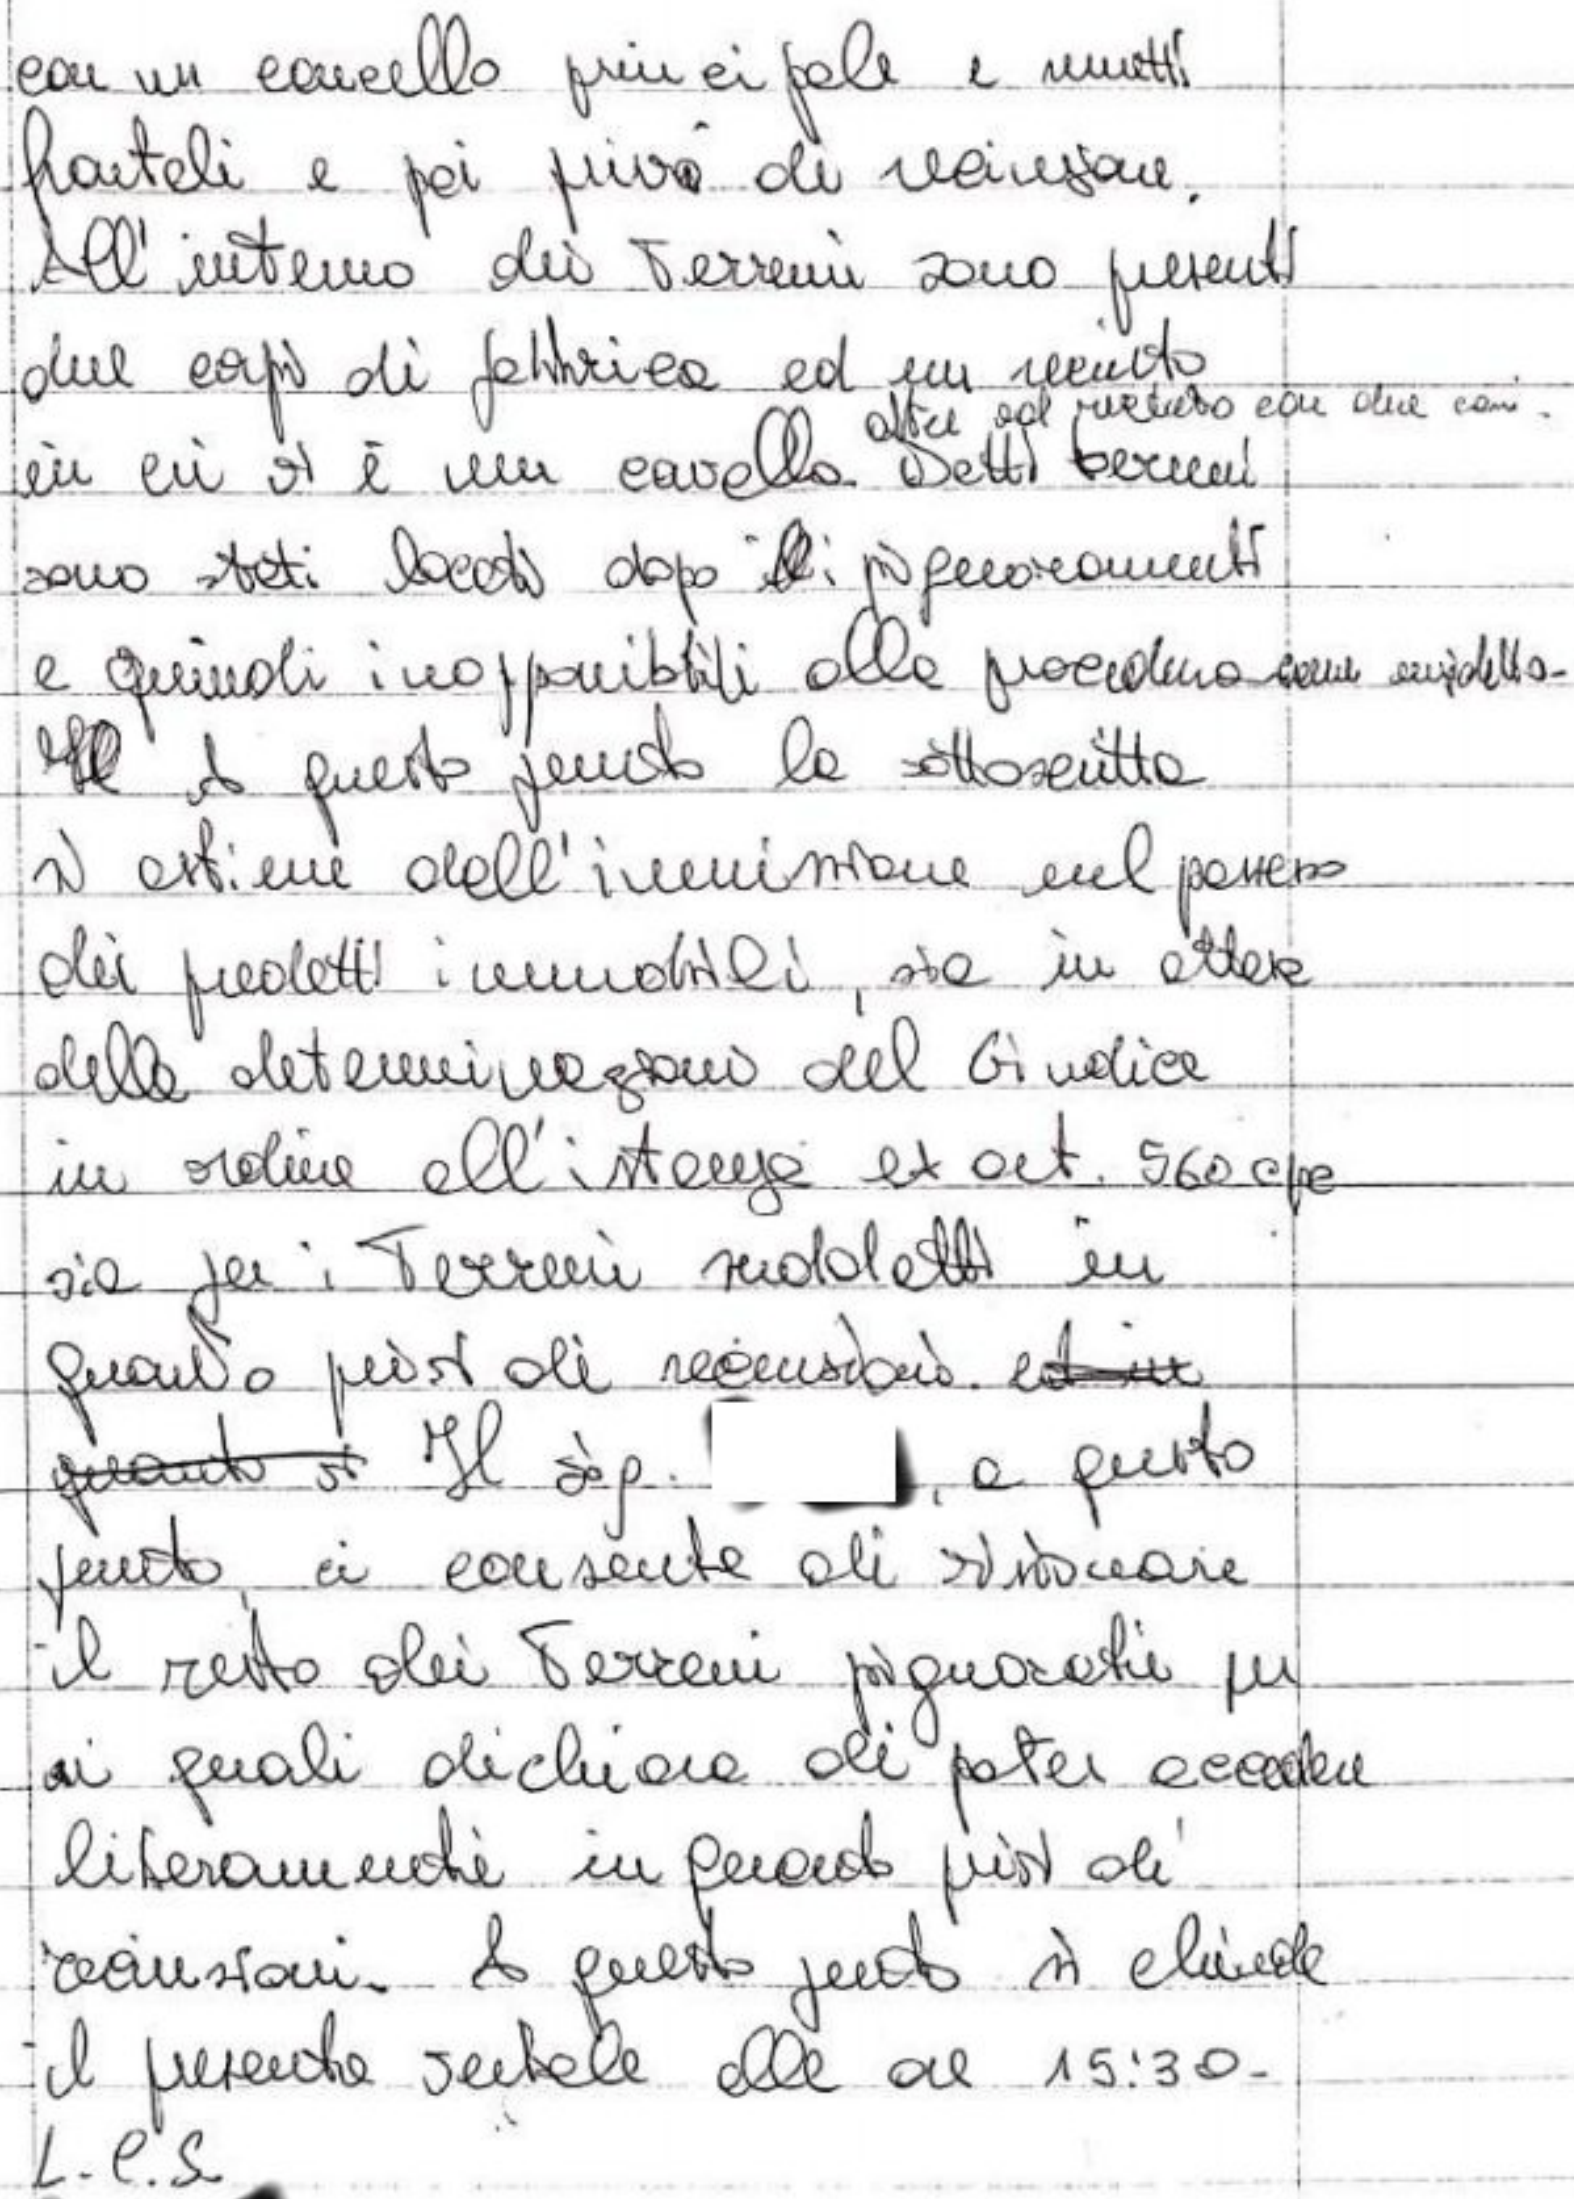 con un cancello principale e muretti
frontali e poi privo di recinzione.
All'interno dei terreni sono presenti
due corpi di fabbrica ed un recinto
oltre ad recinto con due cani.
in cui vi è un cavallo. Detti terreni
sono stati locati dopo i pignoramenti
e quindi inopponibili alla procedura come suddetto.
A questo punto la sottoscritta
si astiene dell'immissione nel possesso
dei predetti immobili, sia in attesa
delle determinazioni del Giudice
in ordine all'istanza ex art. 560 cpc
sia per i terreni suddetti in
quanto privi di recinzioni. ed in
quanto si Il sig. , a questo
punto, ci consente di visionare
il resto dei terreni pignorati per
i quali dichiara di poter accedere
liberamente in quanto privi di
recinzioni. A questo punto si chiude
il presente verbale alle ore 15:30-
L.C.S.